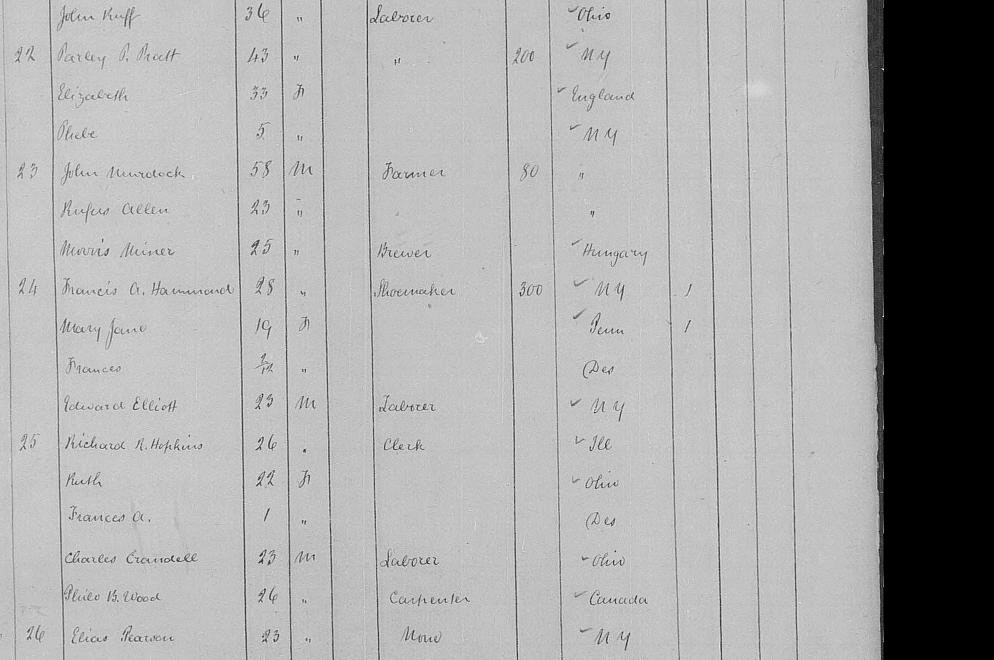 John Kuff 36 " Laborer ✓ Ohio
22 Parley P. Pratt 43 " " 200 ✓ N Y
Elizabeth 33 F ✓ England
Phebe 5 " ✓ N Y
23 John Murdock 58 M Farmer 80 "
Rufus Allen 23 " "
Morris Miner 25 " Brewer ✓ Hungary
24 Francis A. Hammond 28 " Shoemaker 300 ✓ N Y 1
Mary Jane 19 F ✓ Penn 1
Frances 2/12 " Des
Edward Elliott 23 M Laborer ✓ N Y
25 Richard R. Hopkins 26 " Clerk ✓ Ill
Ruth 22 F ✓ Ohio
Frances A. 1 " Des
Charles Crandell 23 M Laborer ✓ Ohio
Philo B. Wood 26 " Carpenter ✓ Canada
26 Elias Pearson 23 " None ✓ N Y